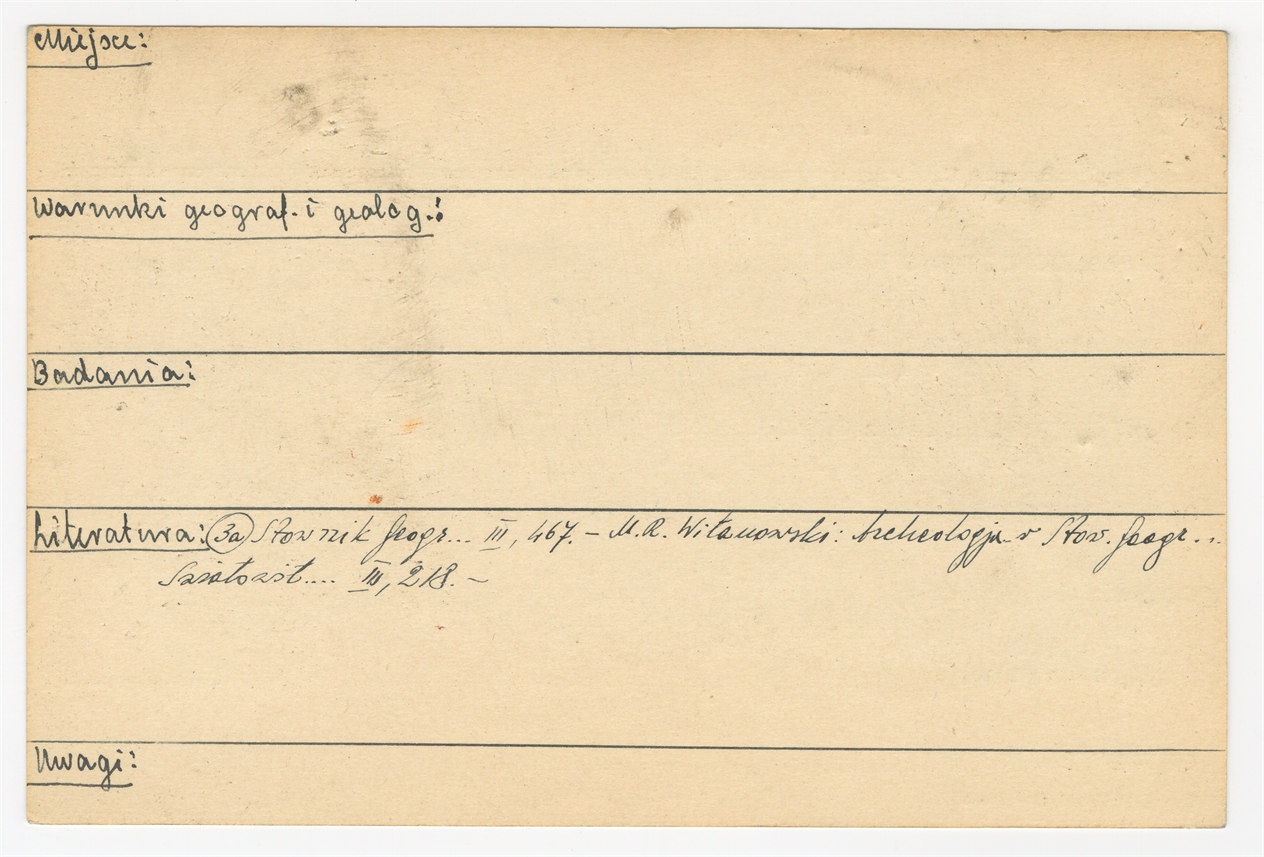 Miejsce:
Warunki geograf. i geolog.:
Badania:
Literatura: (3a) Słownik Geogr... III, 467. – M.R. Witanowski: Archeologja w Słow. Geogr...
Światowit.... III, 218. –
Uwagi: